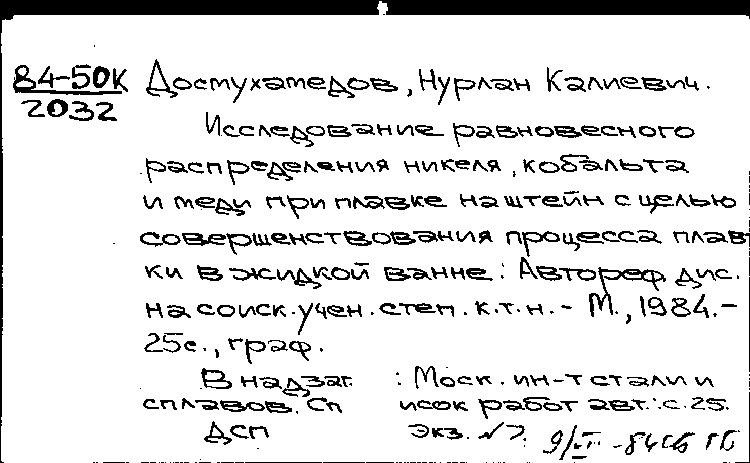 84-50К
2032
Достухамедов, Нурлан Калиевич.
Исследование равновесного
распределения никеля, кобальта
и меди при плавке на штейн с целью
совершенствования процесса плав-
ки в жидкой ванне: Автореф. дис.
на соиск. учен. степ. к.т.н. - М., 1984. -
25с., граф.
В надзаг. : Моск. ин-т стали и
сплавов. Сп исок работ авт.: с. 25.
ДСП Экз. №